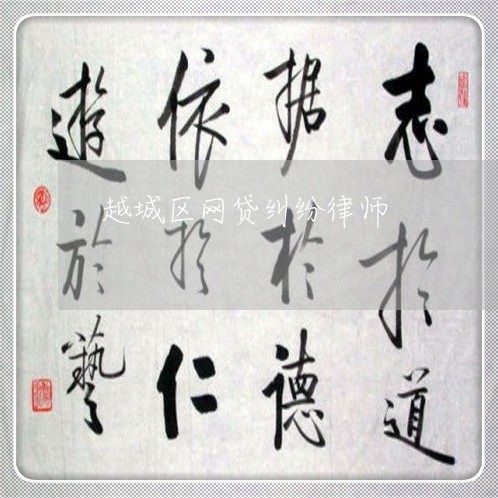 志於道
据於德
依於仁
遊於藝
越城区网贷纠纷律师